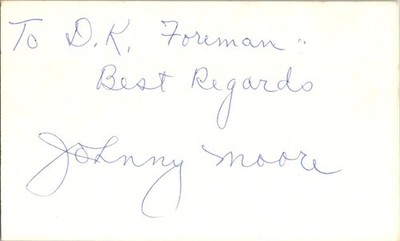 To D.K. Foreman:
Best Regards
Johnny Moore